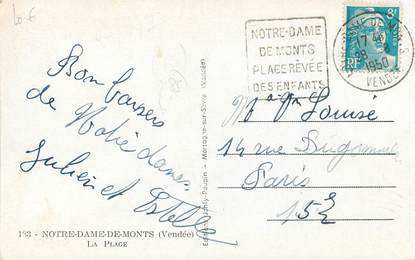 20-E
NOTRE-DAME
DE MONTS
PLAGE RÊVÉE
DES ENFANTS
NOTRE DAME DE MONTS
17 45
1950
VENDÉE
8F
RF
Bon baisers
de Notre dame
Julien et Estelle
Mr Mme Louisé
14 rue
Paris
15e
Edition Jehly-Poupin - Mortagne-sur-Sèvre (Vendée)
133 - NOTRE-DAME-DE-MONTS (Vendée)
LA PLAGE